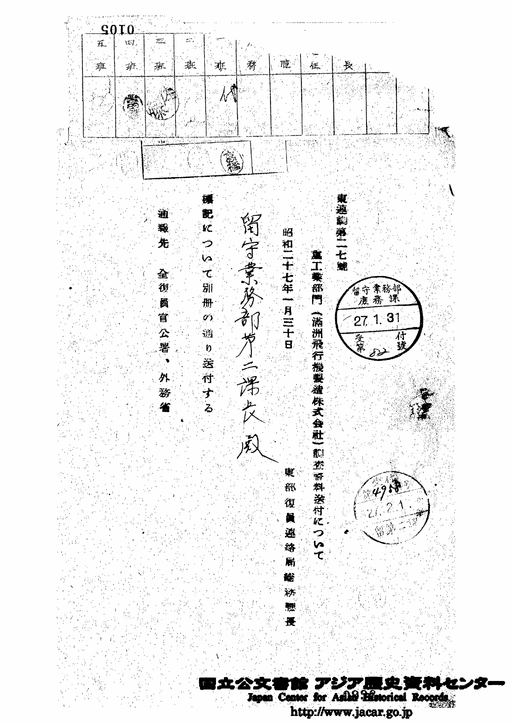 0105
長
任
庶
務
一班
二班
三班
四班
五班
東連調第二七號
重工業部門（満洲飛行機製造株式会社）調査資料送付について
昭和二十七年一月三十日
東部復員連絡局総務部長
留守業務部第二課長殿
標記について別冊の通り送付する
通報先　全復員官公署、外務省
留守業務部
庶務課
27.1.31
受付
第822號
27.2.1
国立公文書館 アジア歴史資料センター
Japan Center for Asian Historical Records
http://www.jacar.go.jp